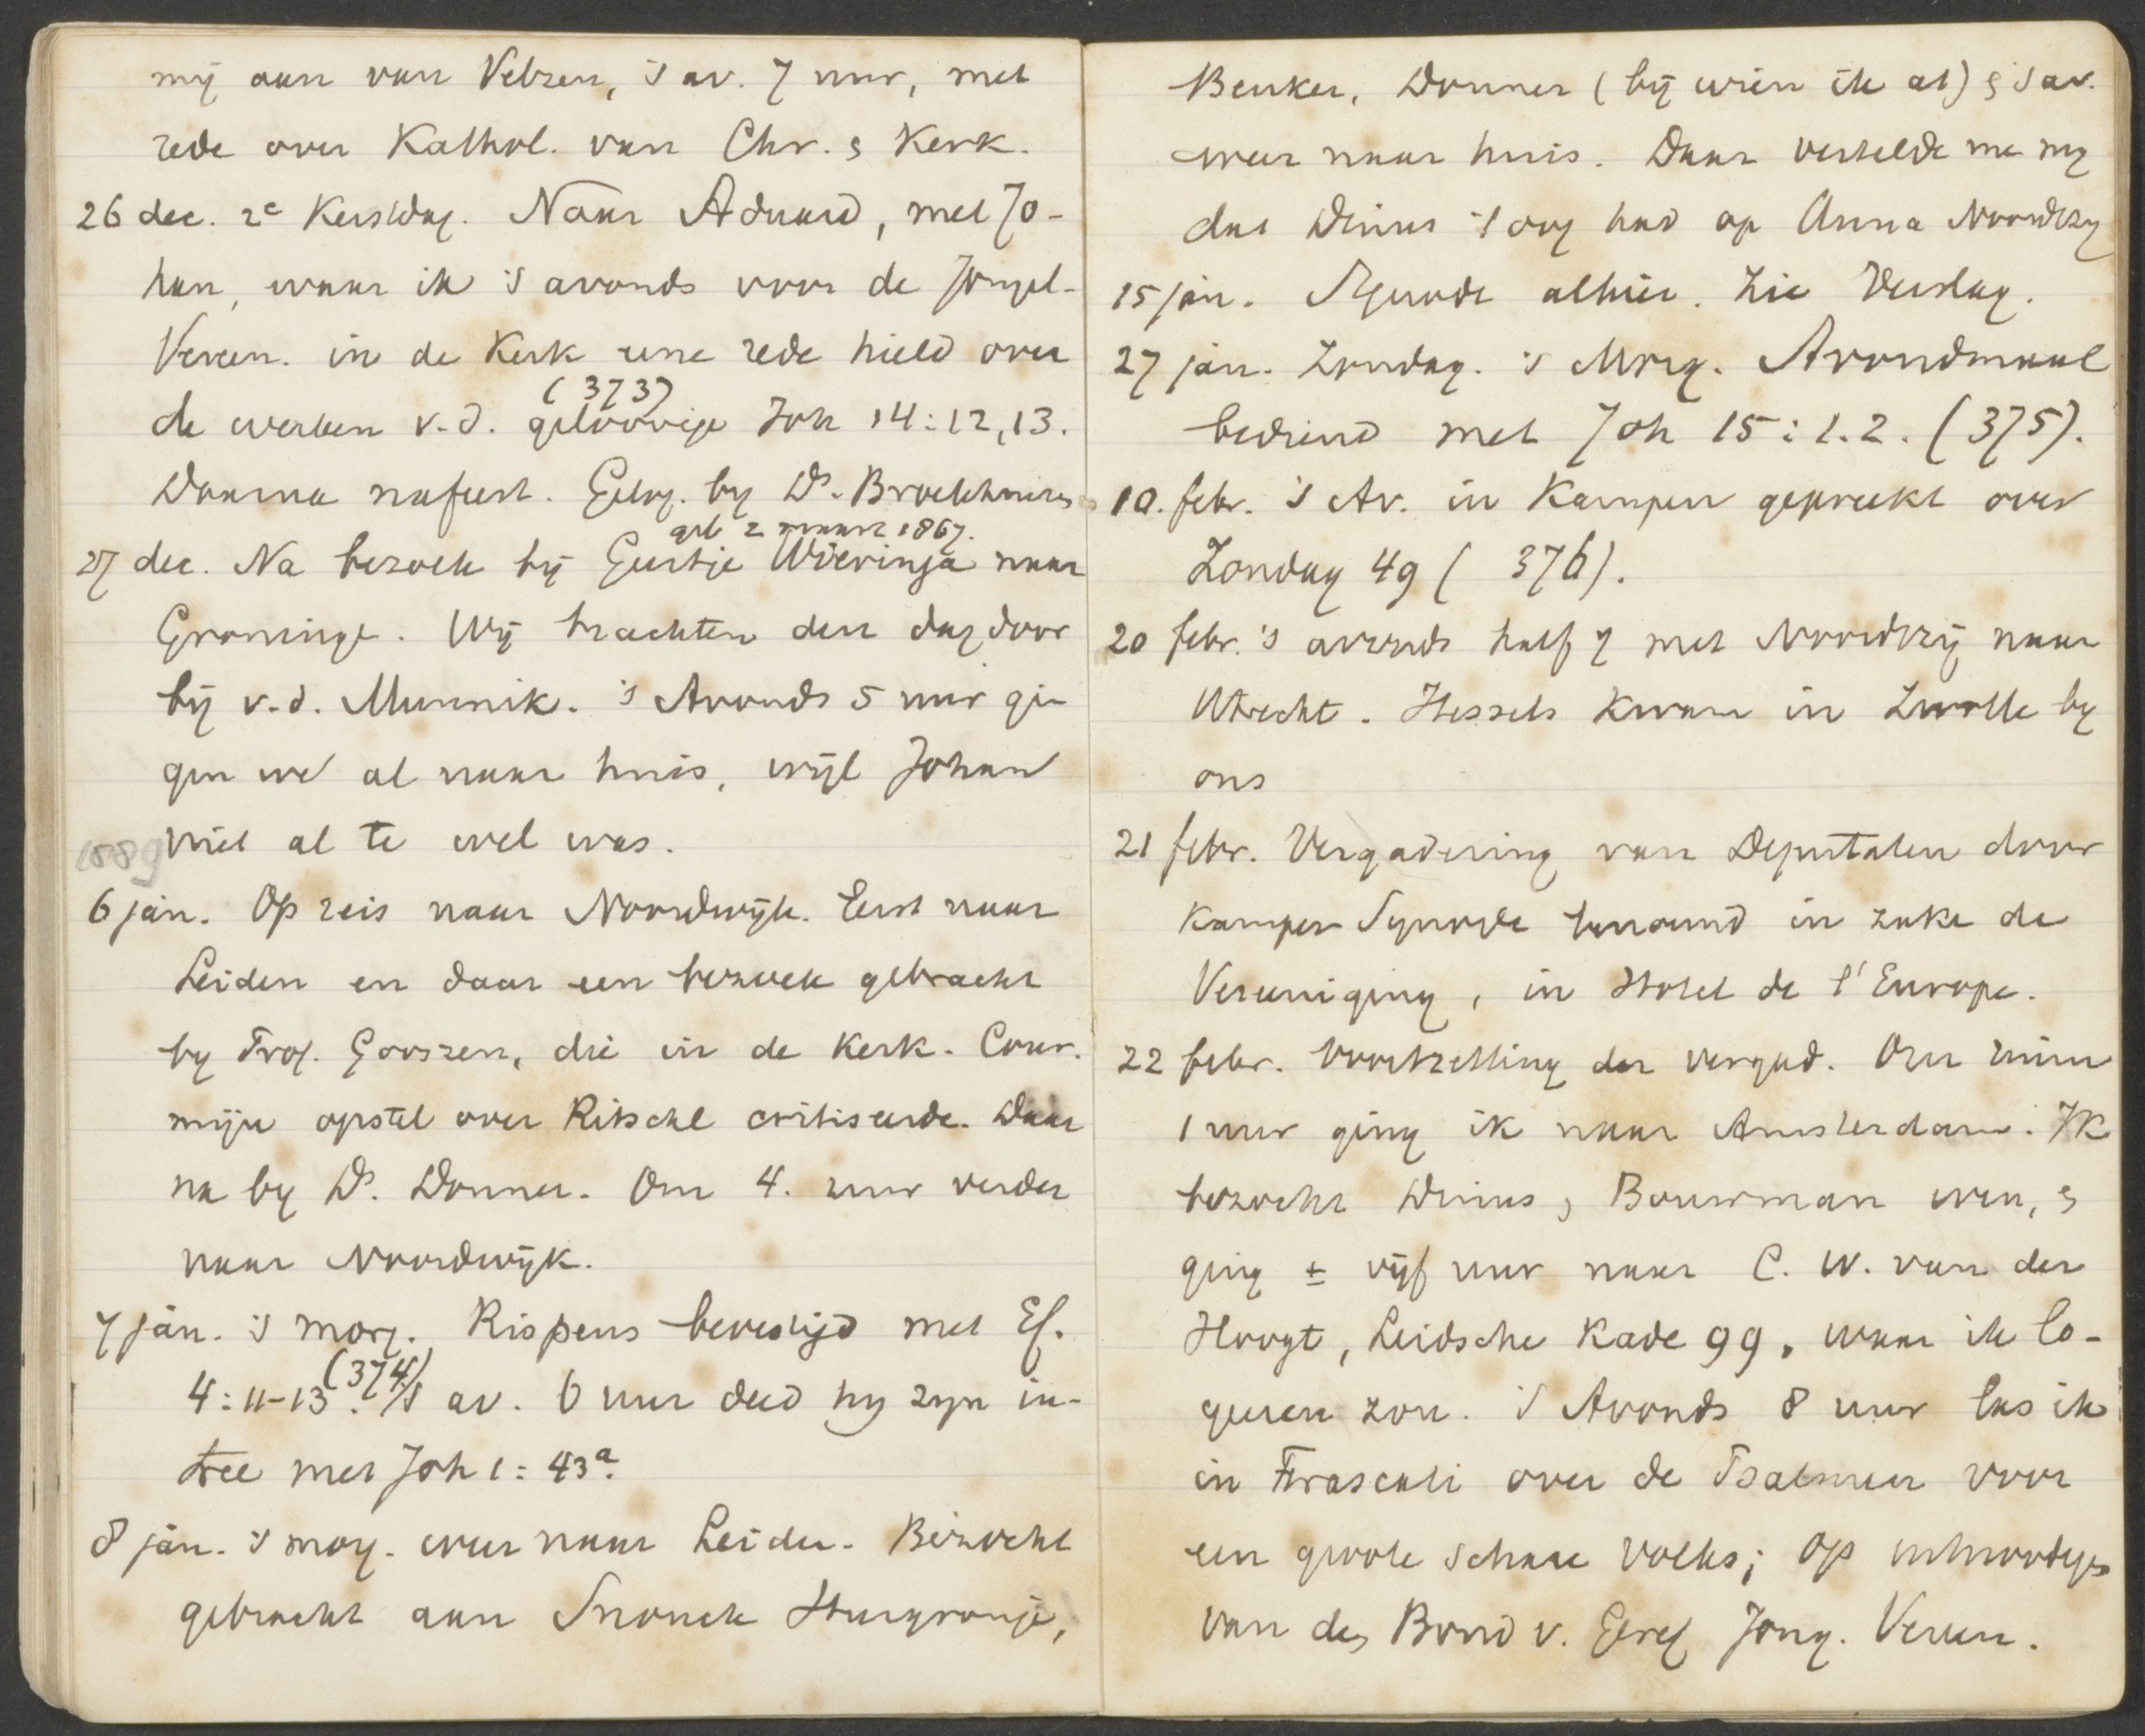 mij aan van Velzen, 's av. 7 uur, met
rede over Kathol. van Chr. & Kerk.
26 dec. 2e Kerstdag. Naar Aduard, met Jo-
han, waar ik 's avonds voor de Jongel-
Vereen. in de Kerk eene rede hield over
(373)
de werken v.d. geloovige Joh 14:12,13.
Daarna nafeest. Gelog. by Ds. Broekhuizen
geb 2 maart 1867.
27 dec. Na bezoek bij Geertje Wieringa naar
Groninge. Wij brachten den dag door
bij v.d. Munnik. 's Avonds 5 uur gin
gen we al naar huis, wijl Johan
niet al te wel was.
1889
6 jan. Op reis naar Noordwijk. Eerst naar
Leiden en daar een bezoek gebracht
by Prof. Gooszen, die in de Kerk. Cour.
mijn opstel over Ritschl critiseerde. Daar
na by Ds. Donner. Om 4. uur verder
naar Noordwijk.
7 jan. 's morg. Rispens bevestigd met Ef.
4:11-13 (374). 's av. 6 uur deed hy zyn in-
tree met Joh 1:43a.
8 jan. 's morg. weer naar Leiden. Bezoekt
gebracht aan Snouck Hurgronje,
Beuker, Donner (bij wien ik at) & 's av.
weer naar huis. Daar vertelde me my
dat Dinus 't oog had op Anna Noordtzy
15 jan. Synode alhier. Zie Verslag.
27 jan. Zondag. 's Morg. Avondmaal
bediend met Joh 15:1.2. (375).
10. febr. 's Av. in Kampen gepreekt over
Zondag 49 (376).
20 febr. 's avonds half 7 met Noordtzij naar
Utrecht. Hessels kwam in Zwolle by
ons
21 febr. Vergadering van Deputaten door
Kamper Synode benoemd in zake de
Vereeniging, in Hotel de l'Europe.
22 febr. Voortzetting der vergad. Om ruim
1 uur ging ik naar Amsterdam. Ik
bezocht Dinus, Bouwman even, &
ging ± vijf uur naar C. W. van der
Hoogt, Leidsche Kade 99, waar ik lo-
geeren zou. 's Avonds 8 uur las ik
in Frascati over de Psalmen voor
een groote schare volks; op
van den Bond v. Geref Jong. Vereen.